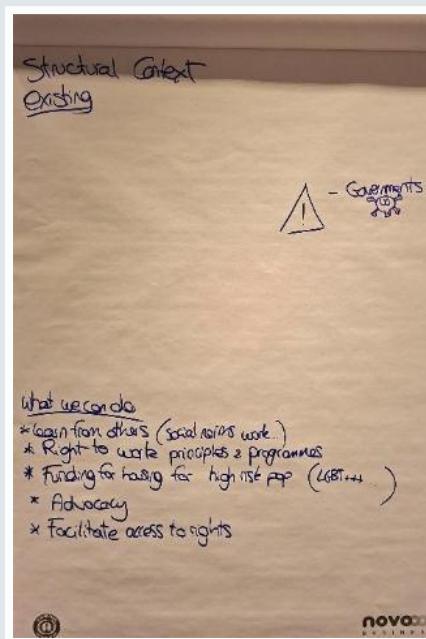 Structural Context
existing
! - Goverments
what we can do
* learn from others (social norms work...)
* Right to work principles & programmes
* Funding for housig for high risk pop (LGBT+++ ...)
* Advocacy
* Facilitate access to rights
novo